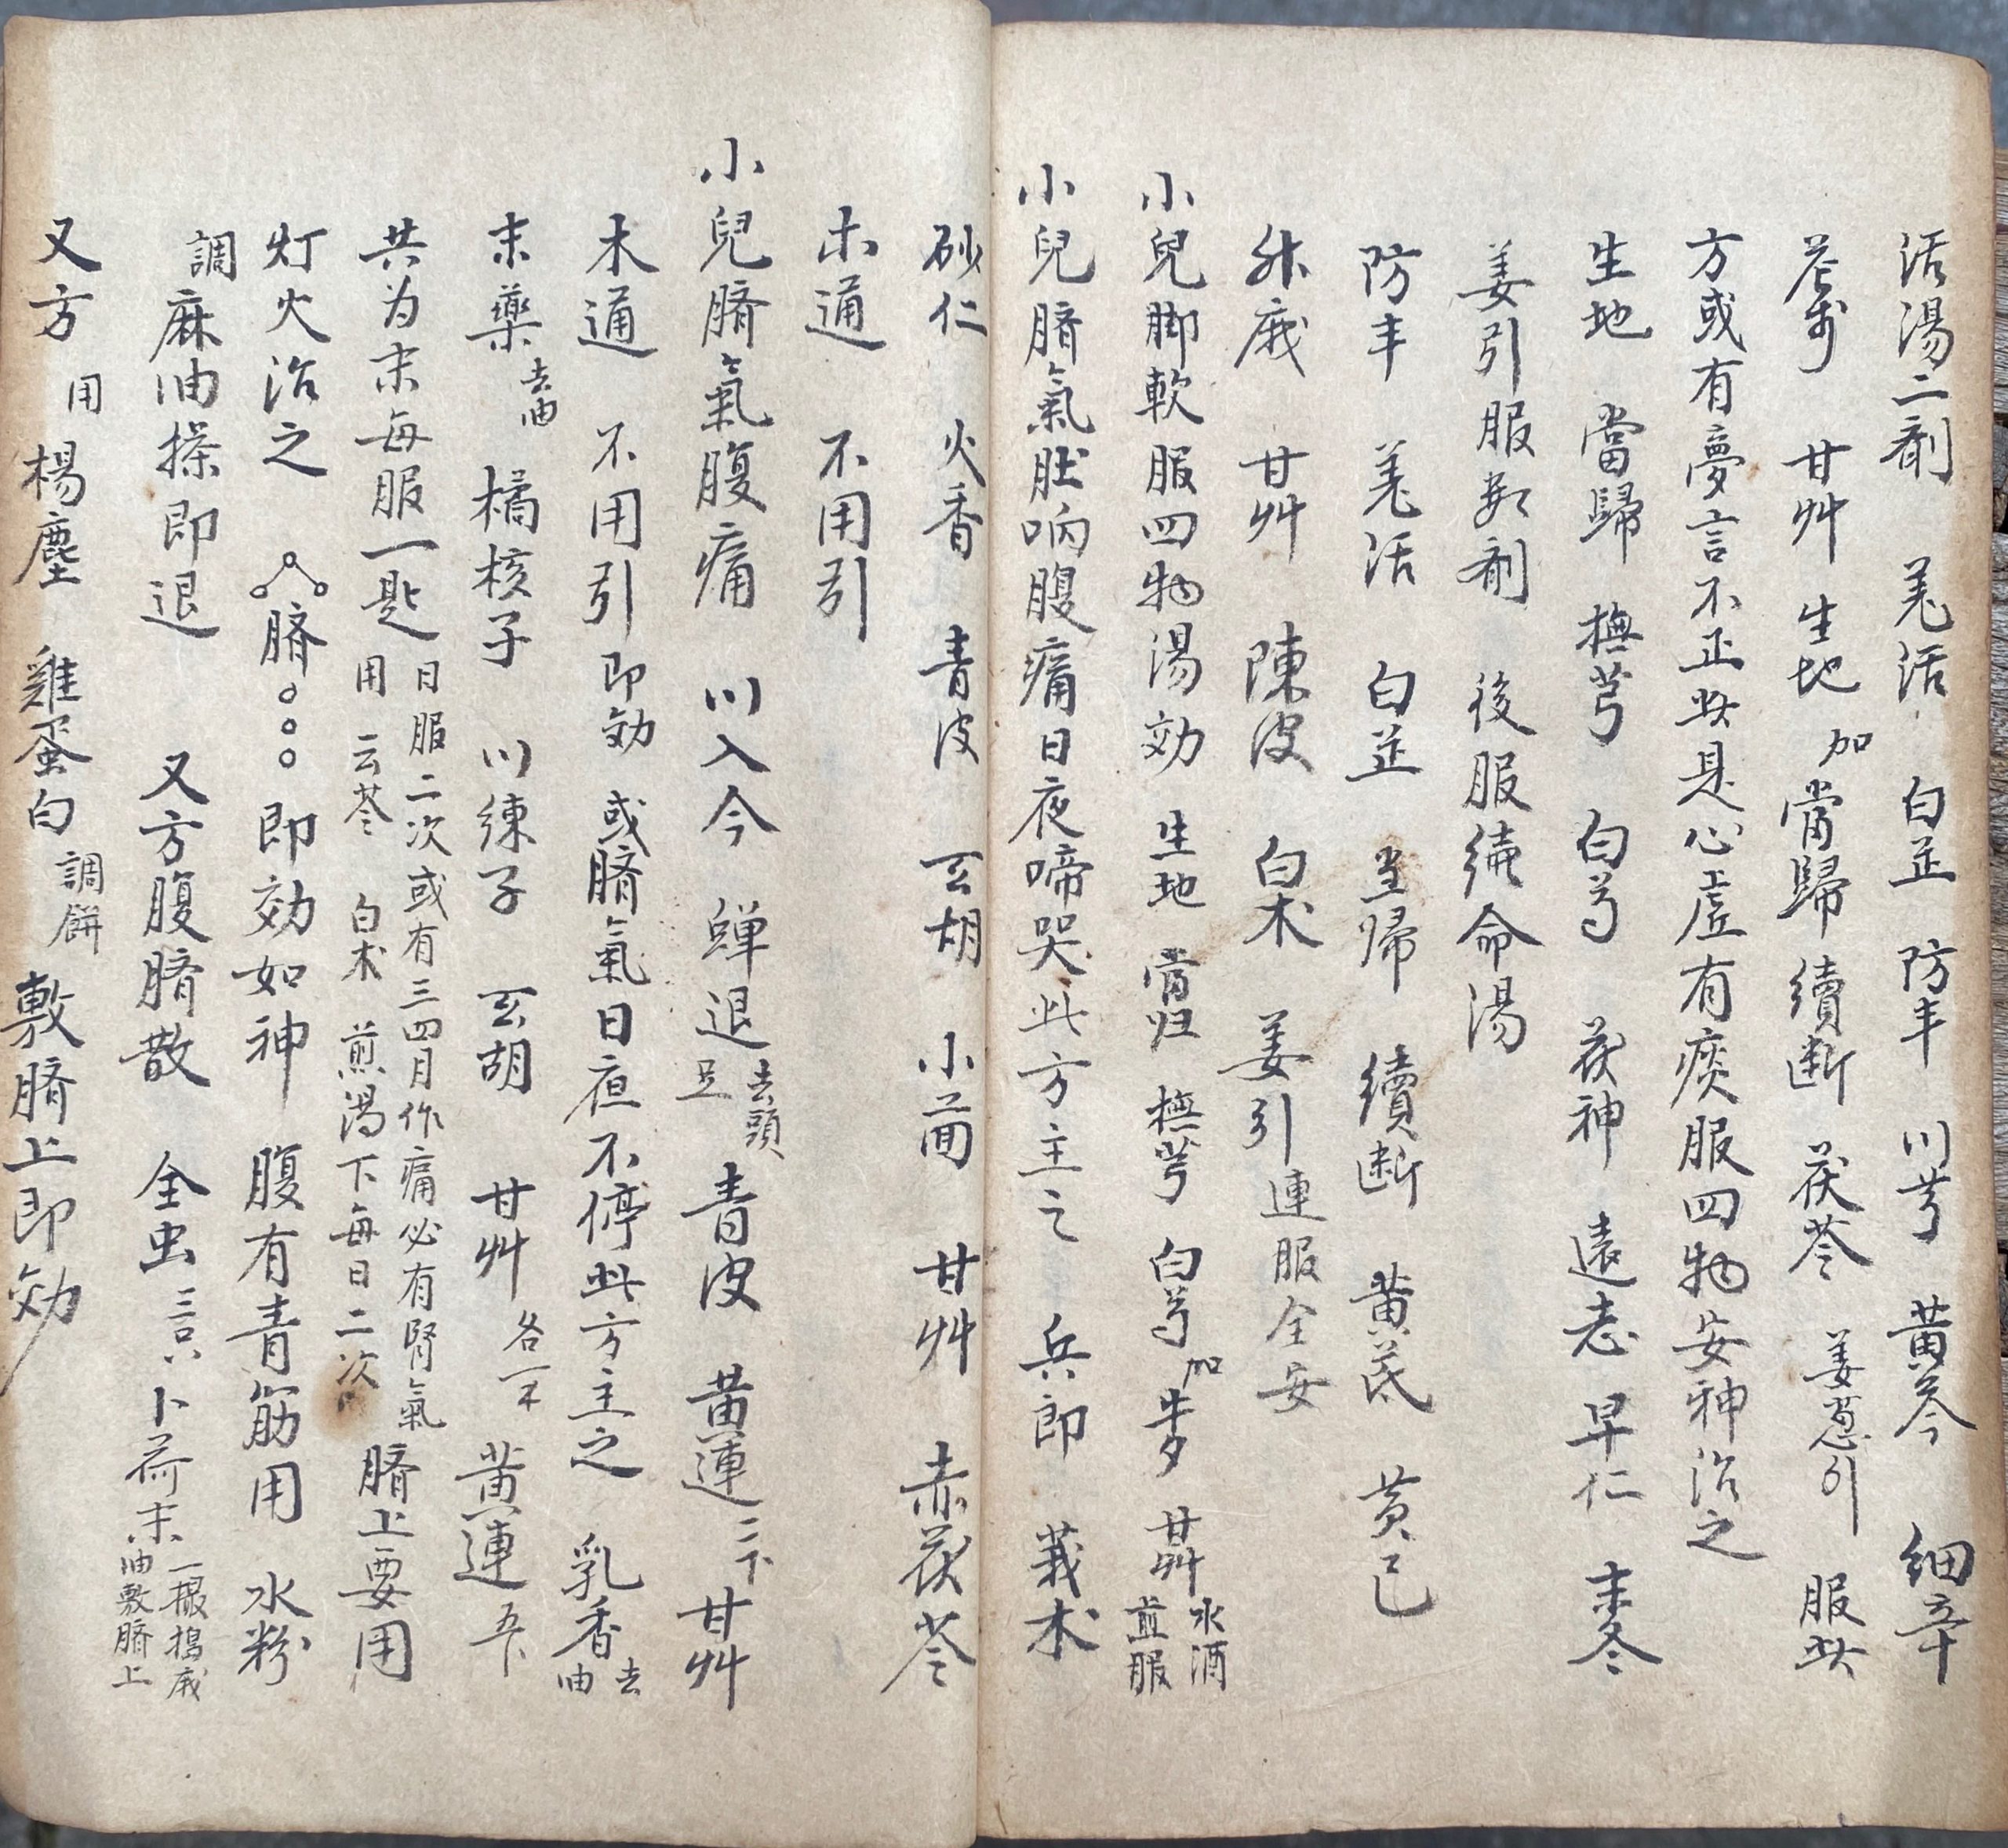 活湯二剤 羌活 白芷 防丰 川芎 黃芩 細辛
蒼朮 甘艸 生地 加當歸 續断 茯苓 姜葱引 服此
方或有夢言不正此是心虛有痰服四物安神治之
生地 當歸 撫芎 白芍 茯神 遠志 早仁 麦冬
姜引服数剤 後服續命湯
防丰 羌活 白芷 全帰 續断 黃芪 黃己
升麻 甘艸 陳皮 白术 姜引連服全安
小兒脚軟服四物湯効 生地 當归 撫芎 白芍 加 甘艸 水酒
並服
小兒臍氣肚响腹痛日夜啼哭此方主之 兵郎 莪术
砂仁 火香 青皮 玄胡 小茴 甘艸 赤茯苓
木通 不用引
小兒臍氣腹痛 川入今 蟬退 去頭
足 青皮 黃連 甘艸
木通 不用引 即効 或臍氣日夜不停此方主之 乳香 去
油
末藥 去油 橘核子 川練子 玄胡 甘艸 各 黃連
共为末每服一匙 日服二次或有三四月作痛必有腎氣
用 云苓 白术 煎湯下每日二次 臍上要用
灯火治之 臍 即効如神 腹有青筋用 水粉
調麻油搽即退 又方腹臍散 全虫 卜荷末 一撮搗成
油敷臍上
又方 用 楊塵 雞蛋白 調餅 敷臍上即効